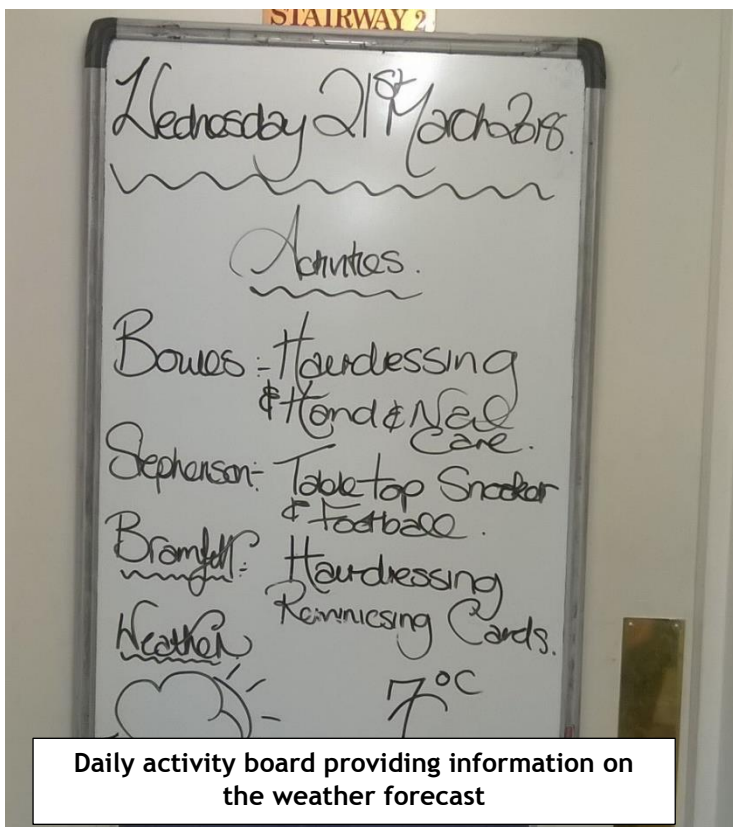 STAIRWAY 2
Wednesday 21st March 2018.
Activities.
Bowes :- Hairdressing
& Hand & Nail
Care.
Stephenson:- Table top Snooker
& Football.
Hairdressing
Cards.
Weather
7°C
Daily activity board providing information on
the weather forecast